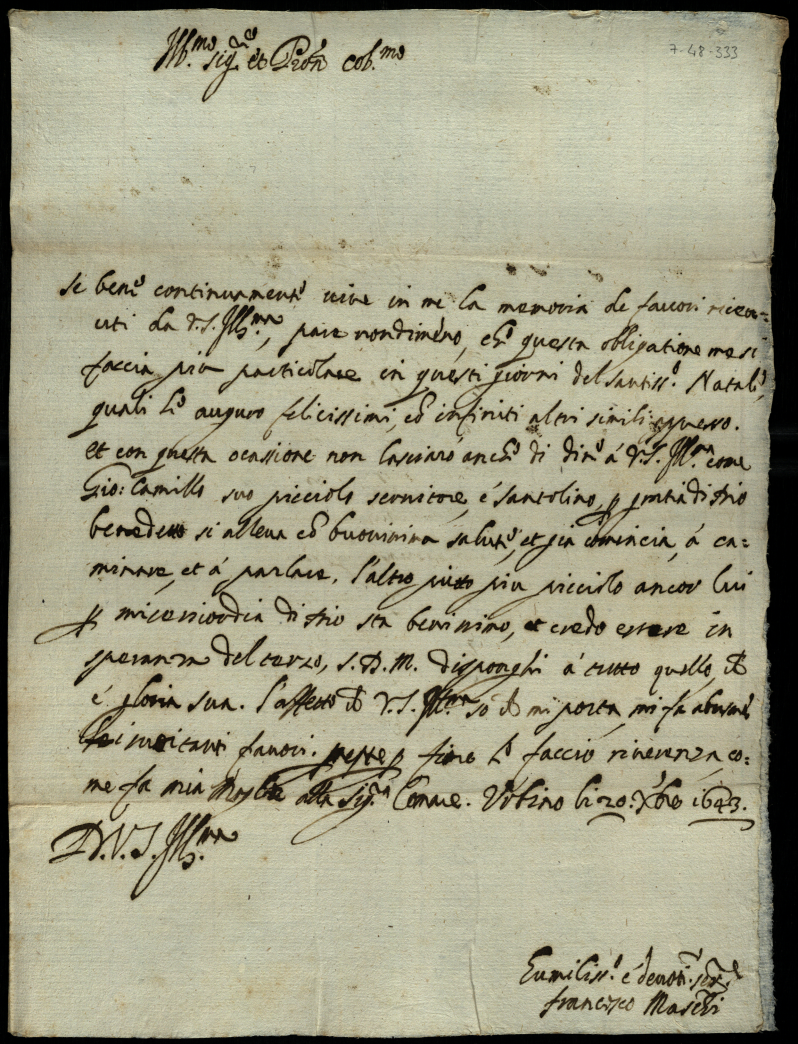 Ill.mo Sig.re et P'ron Col.mo
7-48-333
Se bene continuamente vive in me la memoria de favori ricev=
uti da V.S. Ill.ma, pare nondimeno, che questa obligatione me si
faccia più particolare in questi giorni del Santiss.o Natale,
quali le auguro felicissimi, con infiniti altri simili appresso.
et con questa ocassione non lasciaro anche di dire á V.S. Ill.ma come
Gio: Camillo suo picciolo servitore, é Santolino, p gratia di Dio
benedetto si alleva con buonissima salute, et gia comincia, á ca=
minare, et á parlare. l'altro putto piu picciolo ancor lui
p misericordia di Dio sta benissimo, et credo essere in
speranza del terzo, S.D.M. disponghi á tutto quello, che
é gloria sua. l'affetto che V.S. Ill.ma so che mi porta, mi fa abusare
favori. p fine le faccio riverenza, co=
me fa mia Moglie alla Sig.ra Li 20. Xbre 1643.
D.V.S. Ill.ma
Humiliss.o é devoti. ser.re
Francesco Maschi